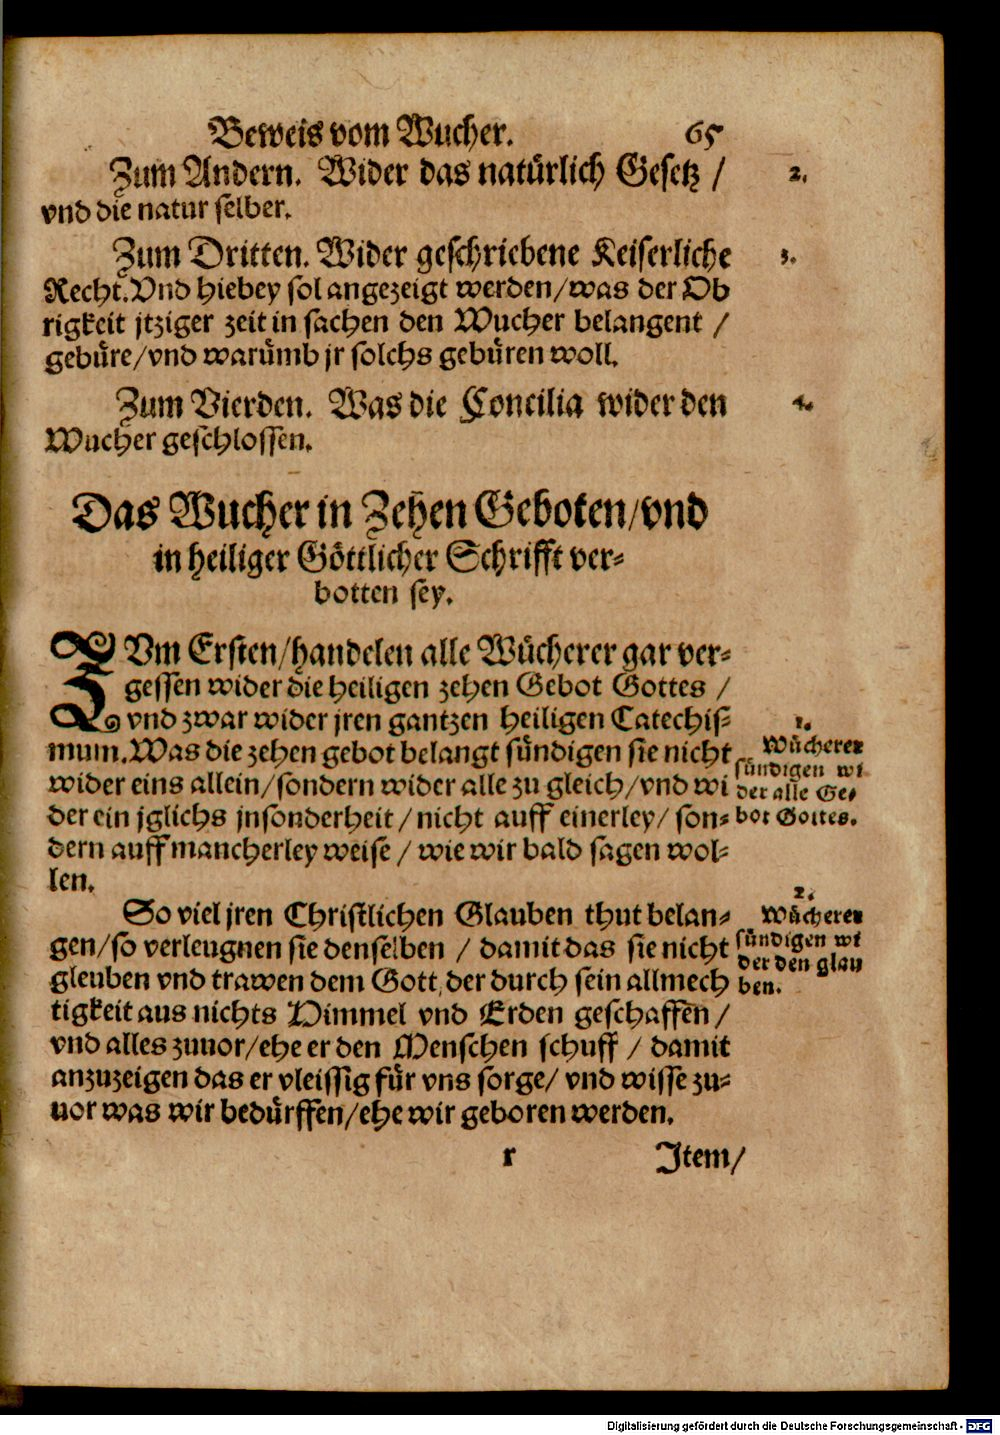 Beweis vom Wucher. 65
Zum Andern. Wider das natürlich Gesetz / 2.
vnd die natur selber.
Zum Dritten. Wider geschriebene Keiserliche 3.
Recht. Vnd hiebey sol angezeigt werden/was der Ob
rigkeit jtziger zeit in sachen den Wucher belangent /
gebüre/vnd warümb jr solchs gebüren woll.
Zum Vierden. Was die Concilia wider den 4.
Wucher geschlossen.
Das Wucher in Zehen Geboten/vnd
in heiliger Göttlicher Schrifft ver-
botten sey.
ZVm Ersten/handelen alle Wücherer gar ver-
gessen wider die heiligen zehen Gebot Gottes /
vnd zwar wider jren gantzen heiligen Catechis-
mum. Was die zehen gebot belangt sündigen sie nicht
wider eins allein/sondern wider alle zu gleich/vnd wi
der ein jglichs jnsonderheit/nicht auff einerley/ son-
dern auff mancherley weise / wie wir bald sagen wol-
len.
1.
Wücherer
sündigen wi
der alle Ge-
bot Gottes.
So viel jren Christlichen Glauben thut belan-
gen/so verleugnen sie denselben / damit das sie nicht
gleuben vnd trawen dem Gott, der durch sein allmech
tigkeit aus nichts Himmel vnd Erden geschaffen /
vnd alles zuuor/ehe er den Menschen schuff / damit
anzuzeigen das er vleissig für vns sorge/ vnd wisse zu-
uor was wir bedürffen/ehe wir geboren werden.
2.
Wücherer
sündigen wi
der den glau
ben.
r Item/
Digitalisierung gefördert durch die Deutsche Forschungsgemeinschaft - DFG